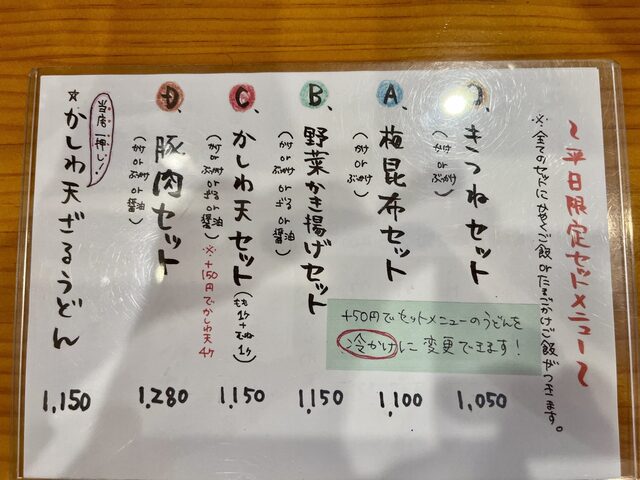 〜平日限定セットメニュー〜
※全てのセットにかやくご飯orたまごかけご飯がつきます。
きつねセット
(かけ or ぶっかけ)
1,050
A、
梅昆布セット
(かけ or ぶっかけ)
1,100
B、
野菜かき揚げセット
(かけ or ざる or ぶっかけ or 醤油)
1,150
C、
かしわ天セット(もも1ケ+むね1ケ)
(かけ or ざる or ぶっかけ or 醤油)
※+150円でかしわ天4ケ
1,150
D、
豚肉セット
(かけ or ぶっかけ)
1,280
当店一押し!
☆かしわ天ざるうどん
1,150
+50円でセットメニューのうどんを
冷かけに変更できます!